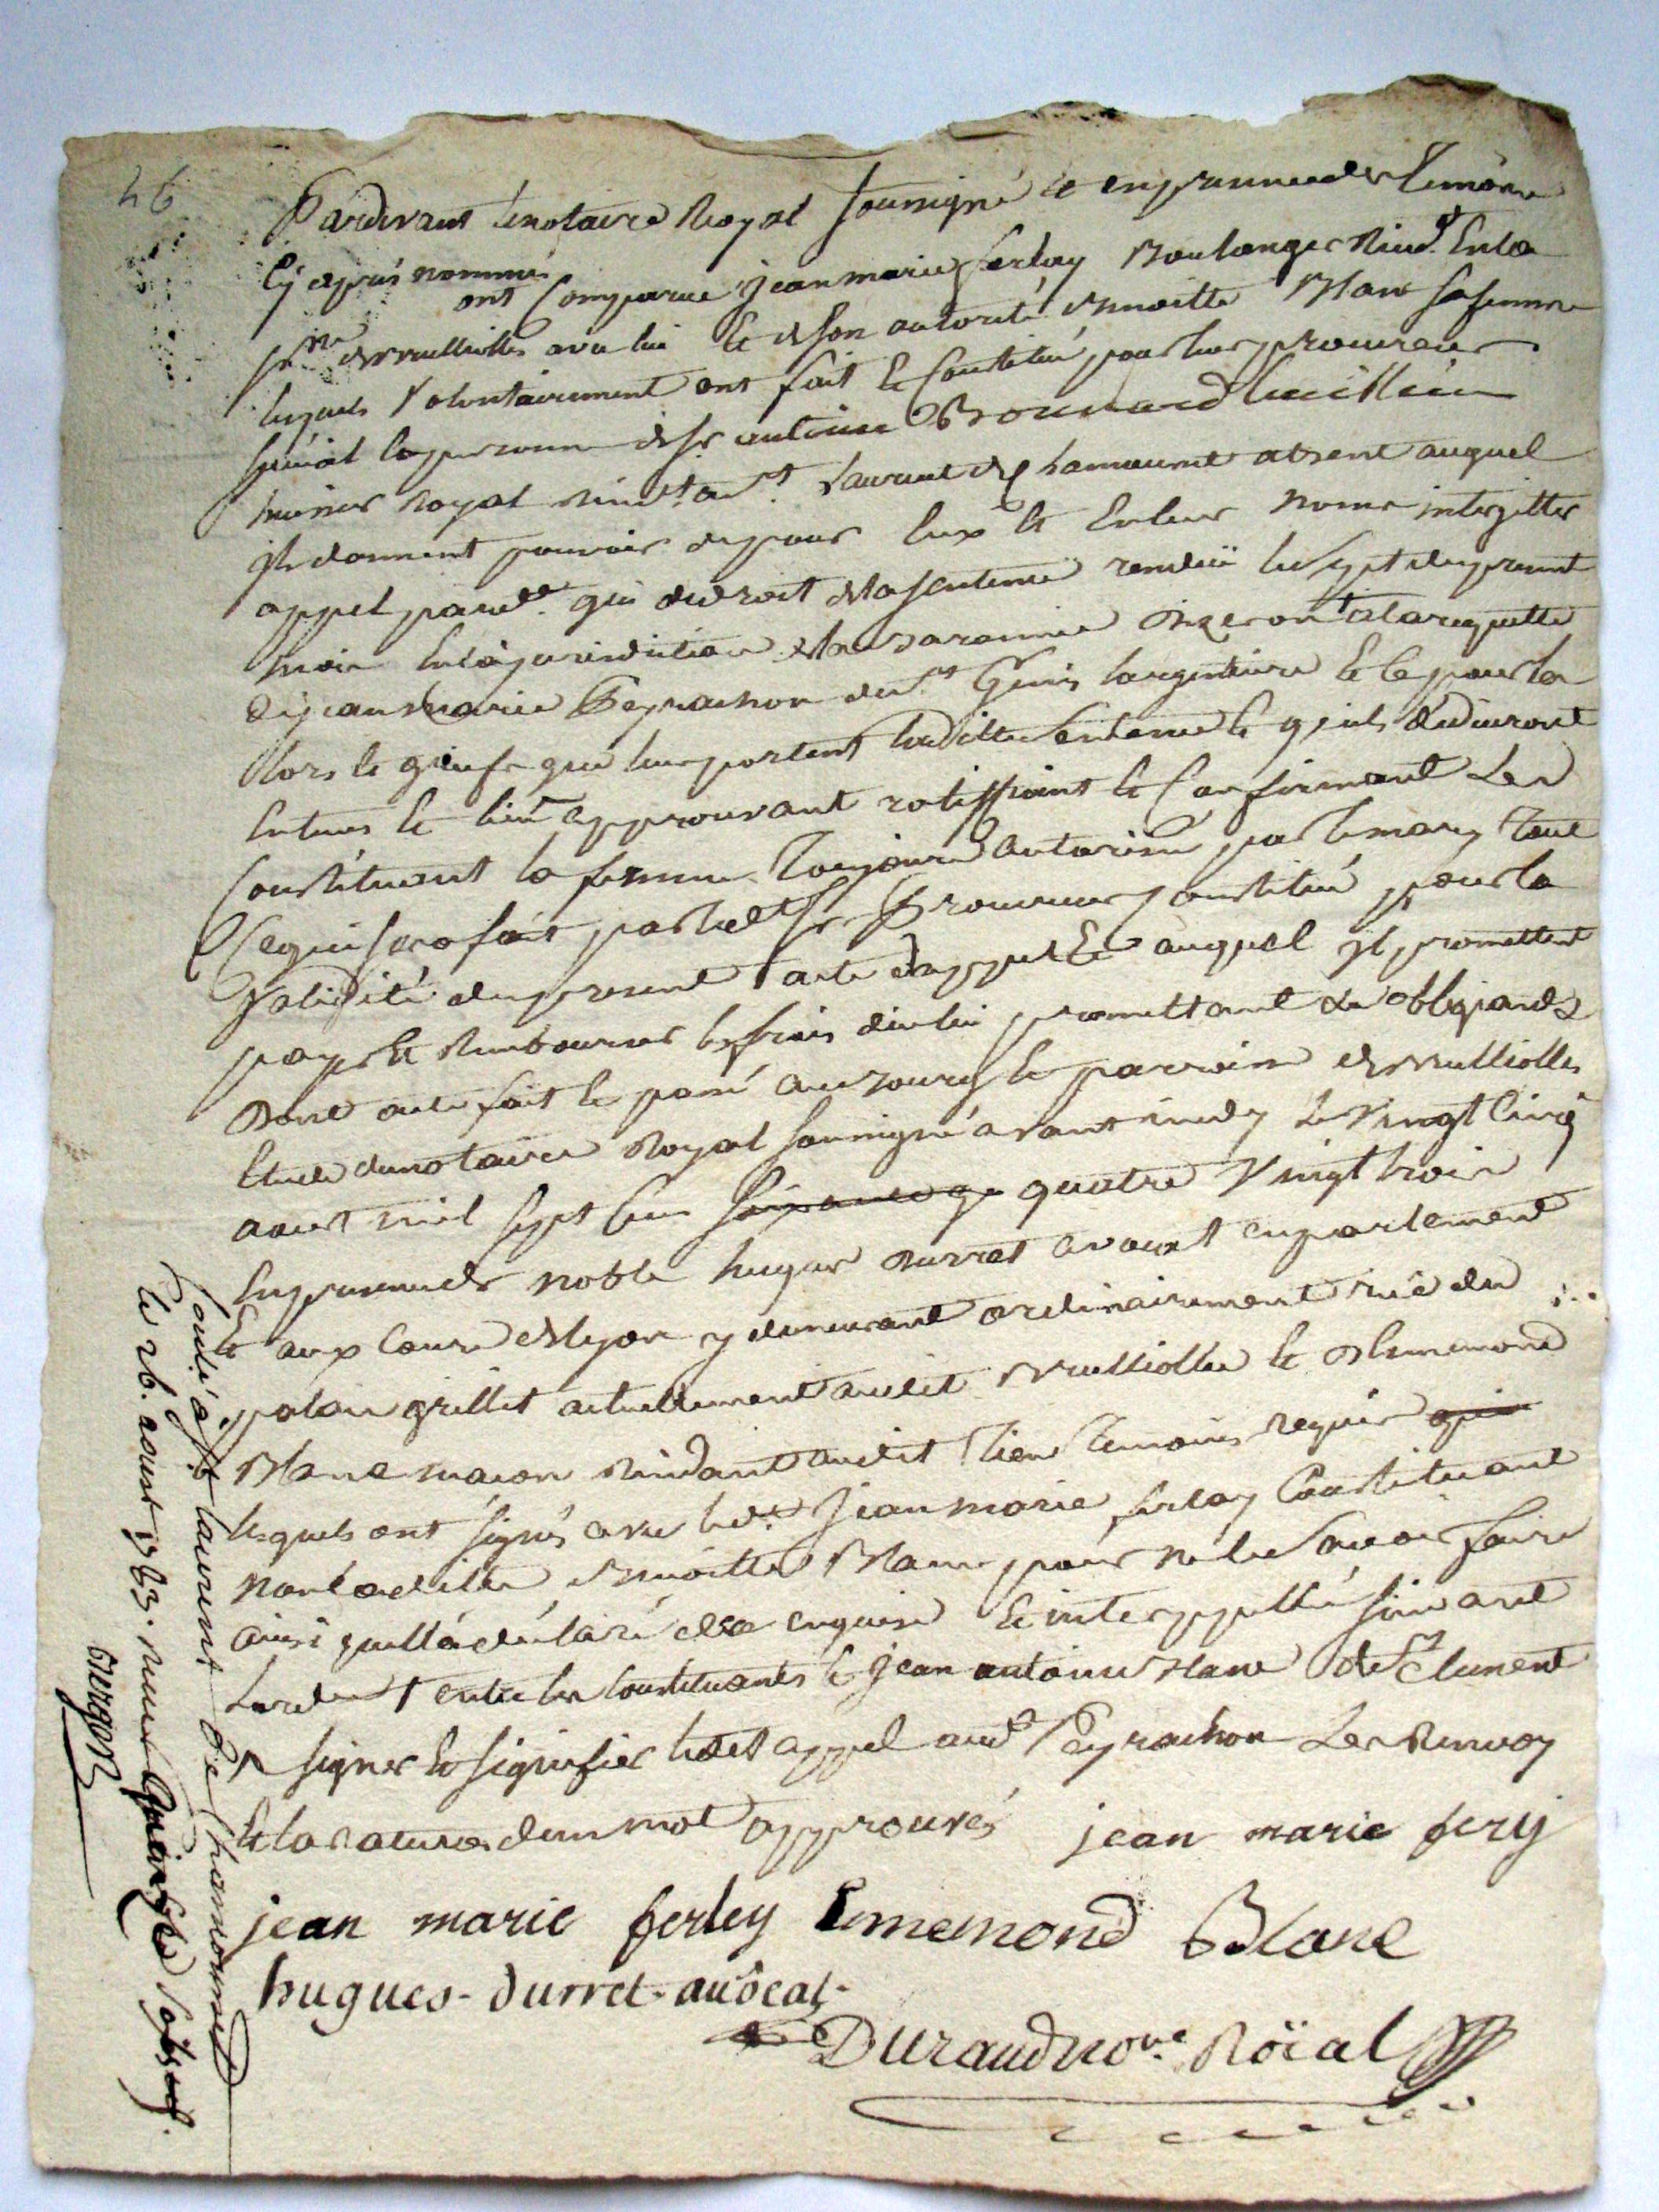 46
Pardevant le notaire Royal soussigné et en presence des temoins
cy apres nommés
ont comparu jean marie ferlay Boulanger Resid.t en la
p.sse de brullioles avec lui et de son autorité Benoitte Blanc sa femme
lesquels volontairement ont fait et constitué pour leur procureur
special la personne de s.r antoine Bonnard
huissier royal resid.t a s.t Laurent de chamousset absent auquel
ils donnent pouvoir de pour eux et en leur noms interjetter
appel pardev.t qui de droit de la sentence rendüe le sept du present
mois en la jurisdiction de la baronnie d'izeron a la requette
de jean Marie Peyrachon de s.t Genis largentiere et ce pour les
torts et griefs que leur portent ladite sentence et qu'ils deduiront
en tems et lieu approuvant ratiffiant et confirmant les
constituants la femme toujours autorisée par le mary tout
ce qui sera fait par led.t s.r Procureur constitué pour la
validité du present acte d'appel et auquel ils promettent
payer et rembourser les frais d'icelui promettant &a obligeants &
Dont acte fait et passé au bourg et parroisse de brullioles
Etude du notaire Royal soussigné avant midy le vingt cinq
aoust mil sept cent soixante quatre vingt trois
en presence de noble hugues Durret avocat en parlement
et aux cours de lyon y demeurant ordinairement rue du
palais grillet actuellement audit brullioles et Ennemond
Blanc macon residant audit lieu temoins requis qui
lesquels ont signés avec led.t jean marie ferlay constituant
non ladite Benoitte Blanc pour ne le savoir faire
ainsi quella déclaré de ce enquise et interppellé suivant
lord.ce entre les constituants et jean antoine blanc de s.t Clement
signer et signifier led.t appel aud.t Peyrachon Les Renvoy
et la rature dun mot approuvés jean marie ferlj
jean marie ferley Ennemond Blanc
hugues - durret - avocat -
Durand no.re Roïal
Controlé a s.t laurent de chamousset
le 26. aoust 1783. Reçu quinze sols